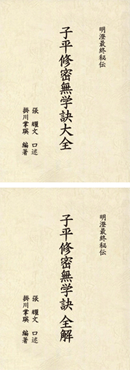 明澄最終秘伝
子平修密無学訣大全
張 耀文 口述
掛川掌瑛 編著
明澄最終秘伝
子平修密無学訣 全解
張 耀文 口述
掛川掌瑛 編著